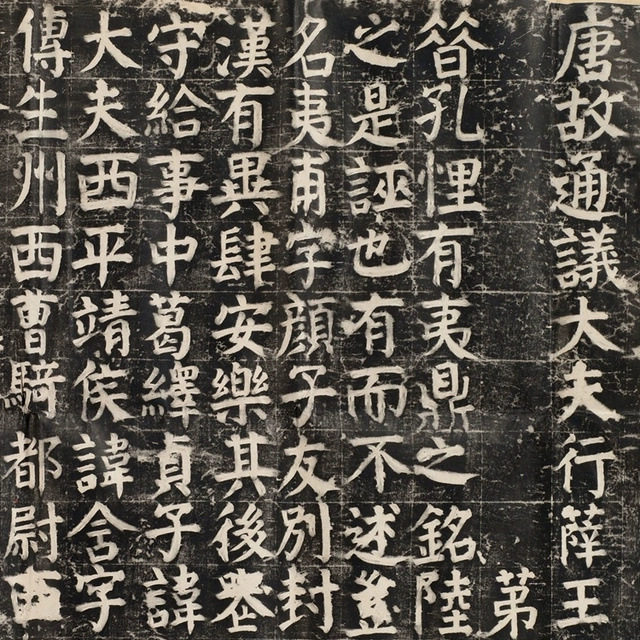 唐故通議大夫行薛王
苐
昔孔悝有夷鼎之銘陸
之是誣也有而不述豈
名夷甫字顏子友別封
漢有異肆安樂其後
守給事中葛繹貞子諱
大夫西平靖侯諱含字
傳生州西曹騎都尉西